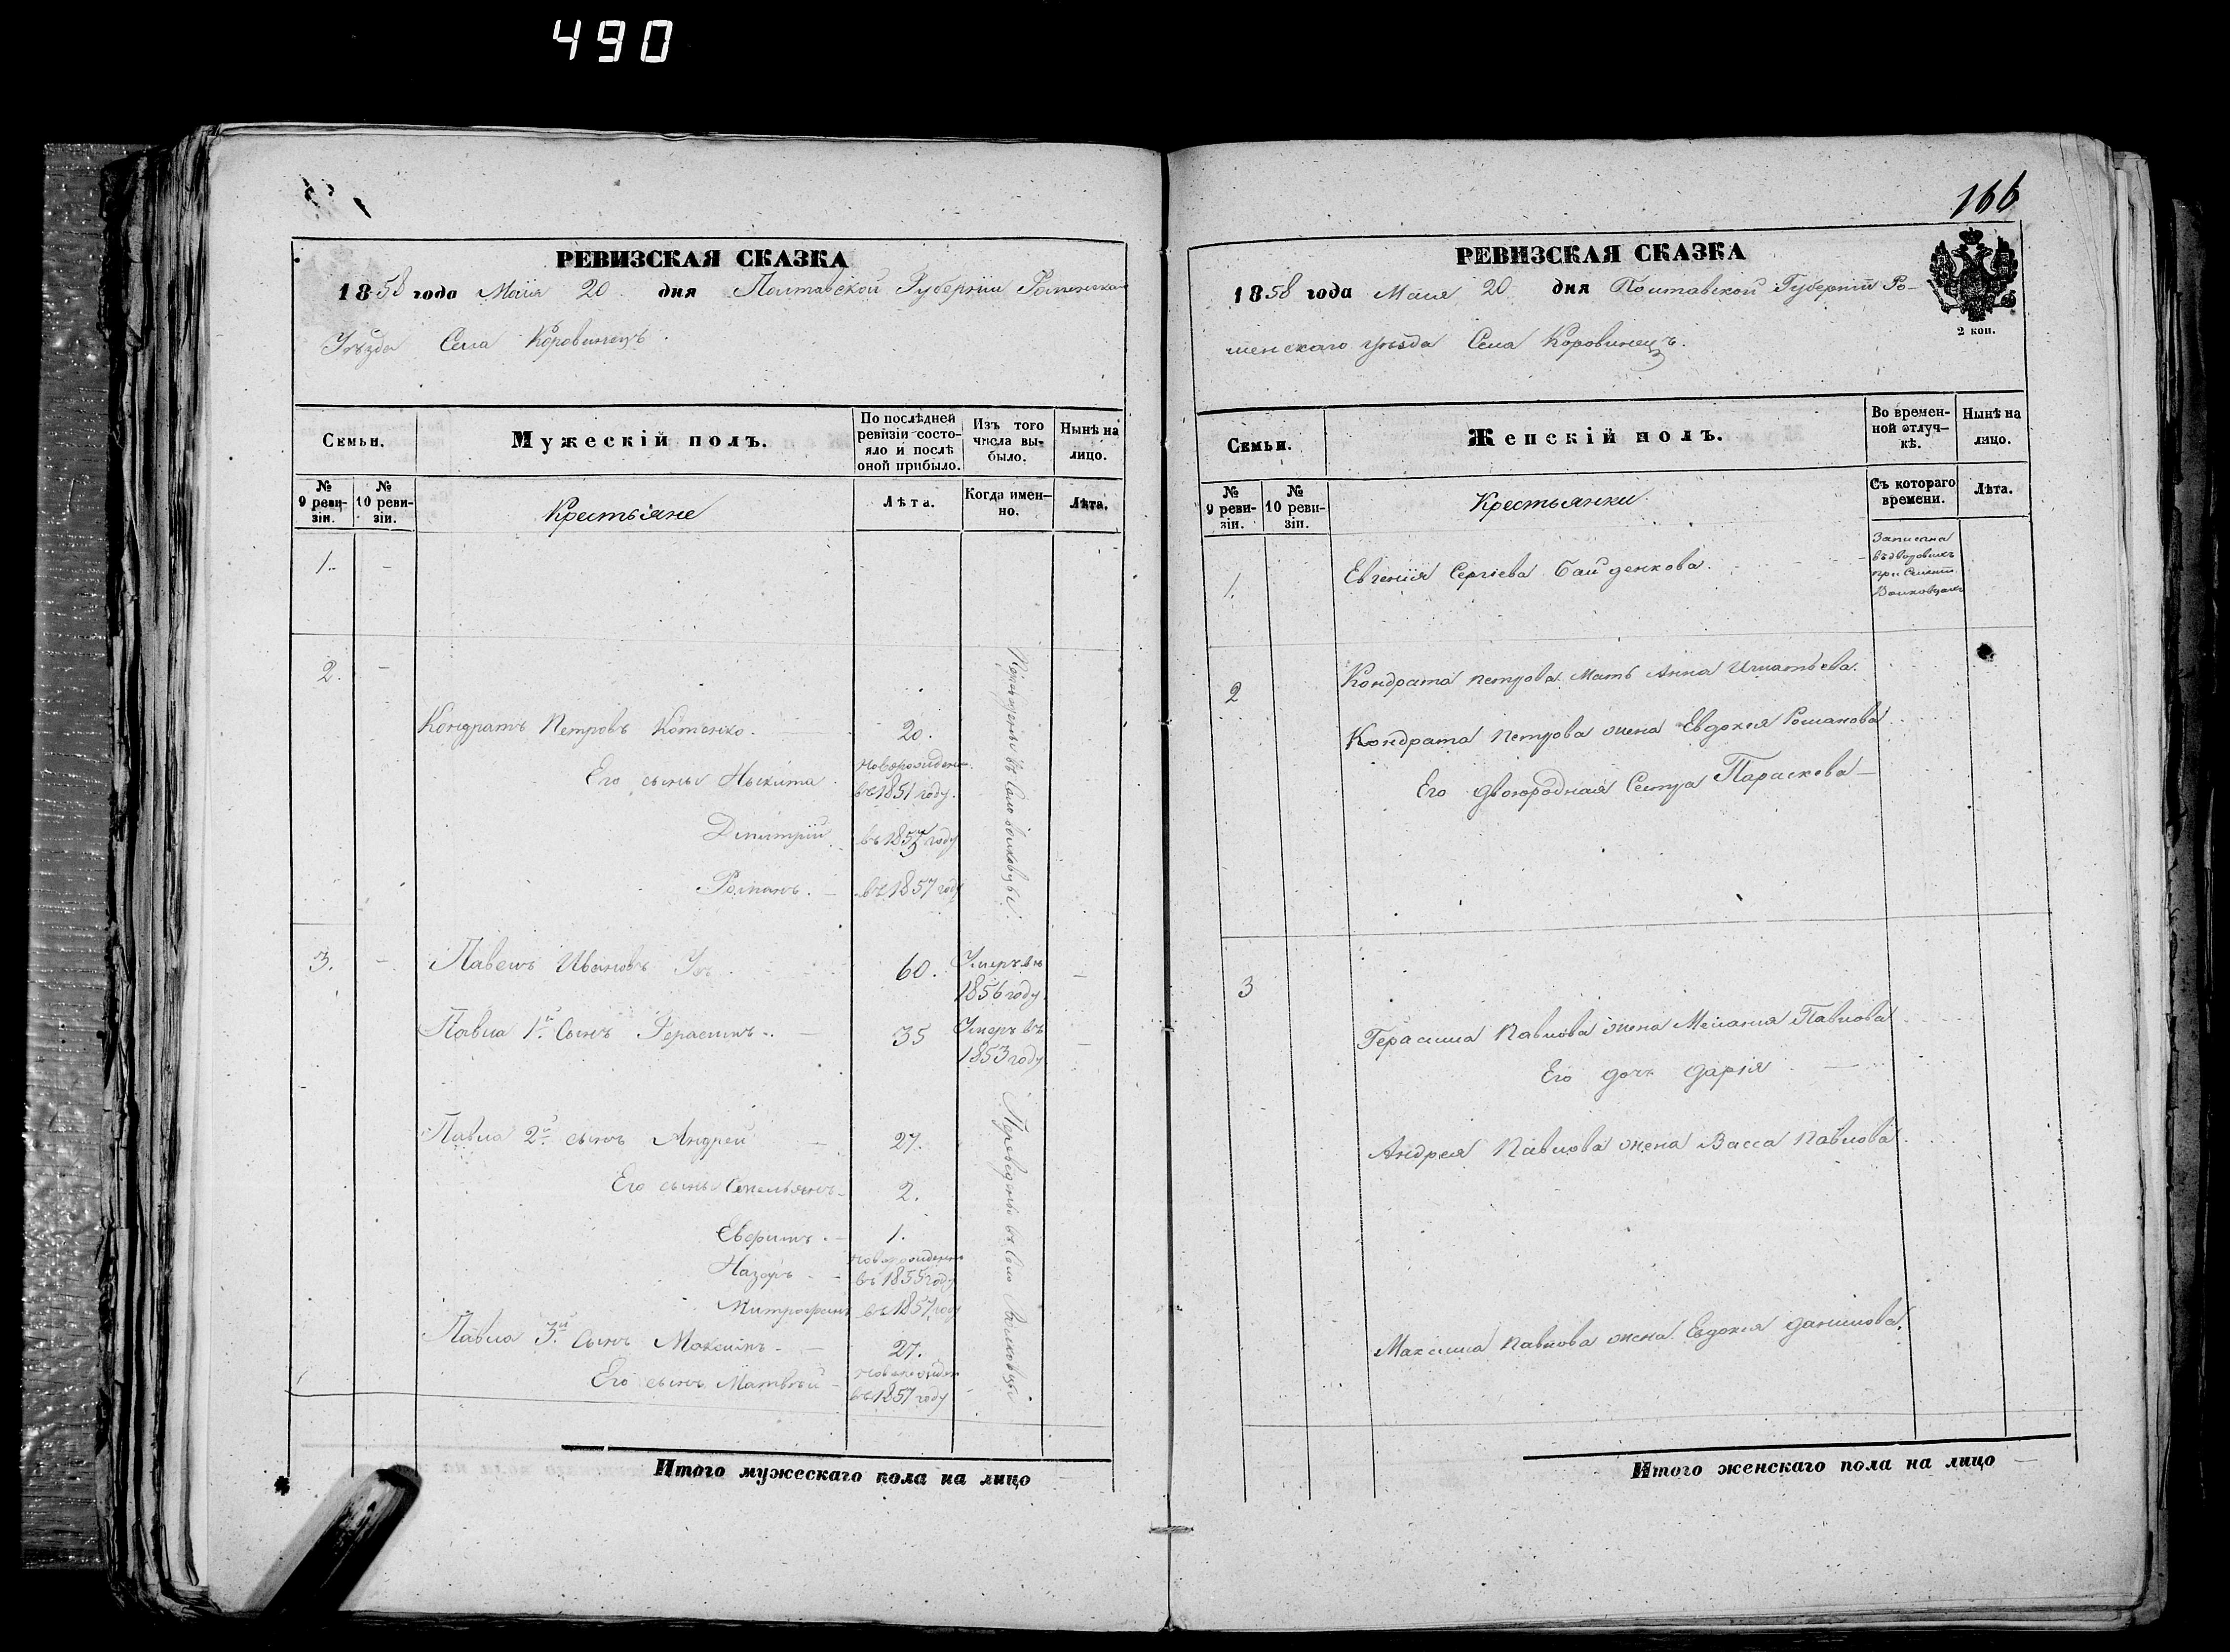 490
РЕВИЗСКАЯ СКАЗКА
1858 года Маія 20 дня Полтавской Губерніи Роменскаго
Уѣзда Села Коровинецъ.
Семьи.
Мужескій полъ.
По послѣдней ревизіи состояло и послѣ оной прибыло.
Изъ того числа выбыло.
Нынѣ на лицо.
№ 9 ревизіи.
№ 10 ревизіи.
Крестьяне
Лѣта.
Когда именно.
Лѣта.
1. -
2. -
Кондратъ Петровъ Котенко. 20.
Его сыны Никита новорожден. въ 1851 году.
Дмитрій въ 1853 году
Романъ. въ 1857 году
въ село Волковцы.
3. - Павелъ Ивановъ 60. Умеръ въ 1856 году. -
Павла 1й сынъ Герасимъ. - 35 Умеръ въ 1853 году. -
Павла 2й сынъ Андрей - 27.
Его сыны Емельянъ 2.
1.
Назаръ - новорожден. въ 1855 году
Митрофанъ въ 1857 году
Павла 3й сынъ Максимъ - 27.
Его сынъ Матвѣй - въ 1857 году
Переведены въ село Волковцы
Итого мужескаго пола на лицо
166
РЕВИЗСКАЯ СКАЗКА
1858 года Маія 20 дня Полтавской Губерніи Ро-
менскаго уѣзда Села Коровинецъ.
2 коп.
Семьи.
Женскій полъ.
Во временной отлучкѣ.
Нынѣ на лицо.
№ 9 ревизіи.
№ 10 ревизіи.
Крестьянки
Съ котораго времени.
Лѣта.
1. Евгенія Сергіева Байденкова. -
Записана
въ дворовыхъ
при
Волковцахъ
2 Кондрата Петрова Мать Анна Игнатьева.
Кондрата Петрова жена Евдокія Романова
Его двоюродная Сестра Параскева -
3
Герасима Павлова жена Меланія Павлова
Его дочь Дарія -
Андрея Павлова жена Васса Павлова.
Максима Павлова жена Евдокія Данилова.
Итого женскаго пола на лицо -